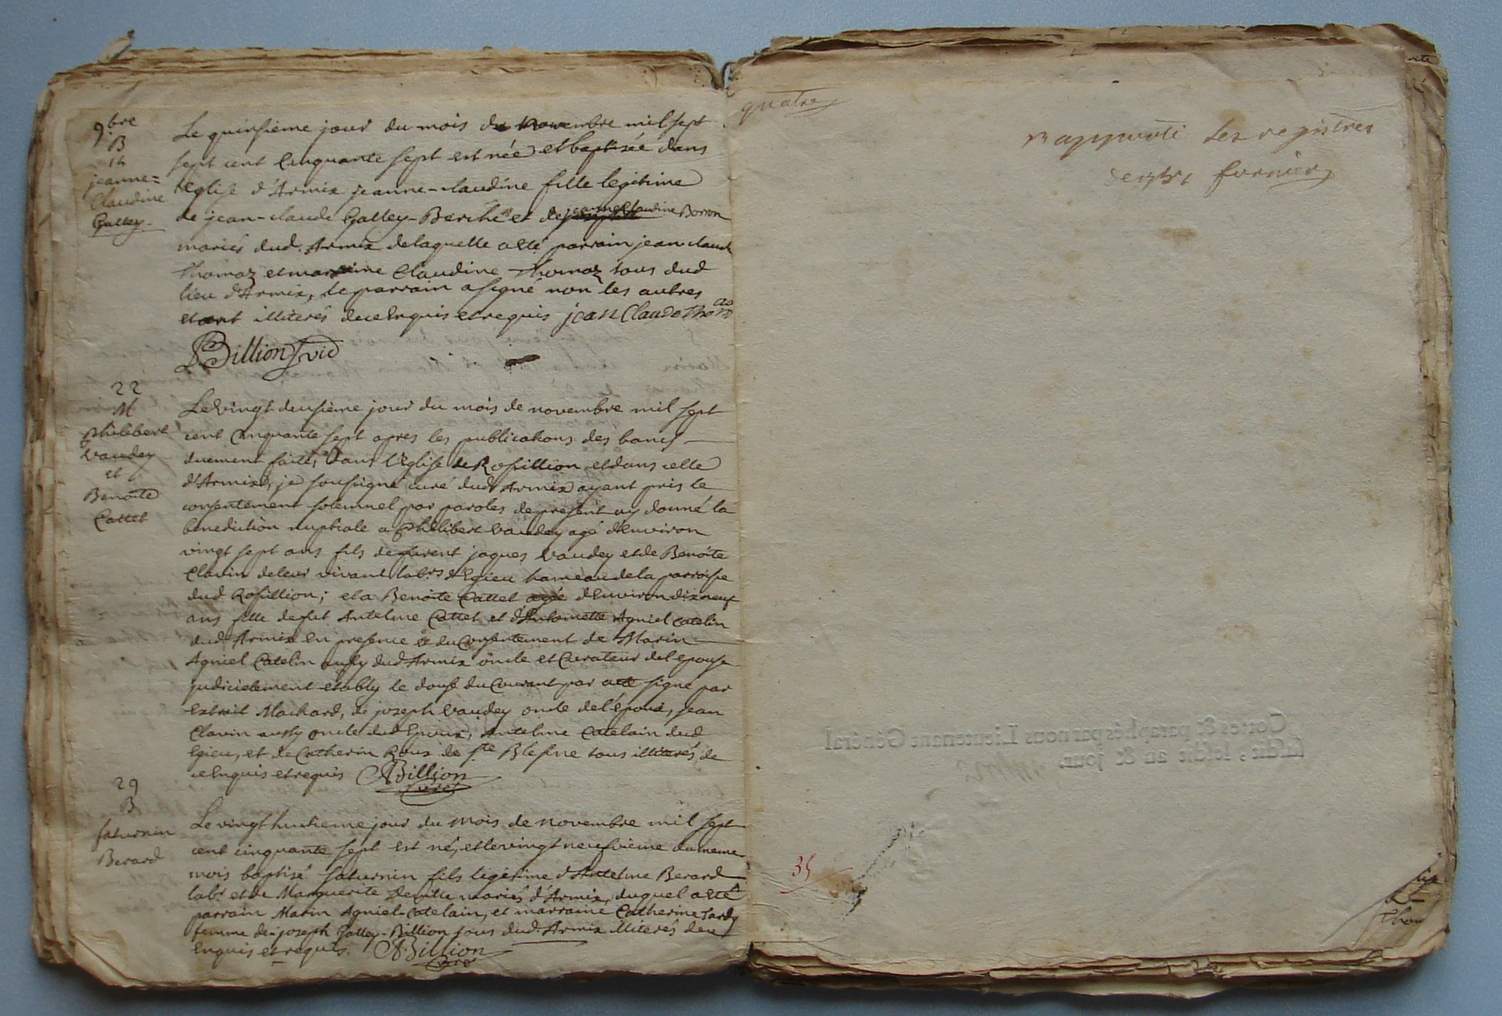 9bre
B
14
jeanne=
Claudine
Galley.
Le quinsième jour du mois de Novembre mil sept
sept cent Cinquante sept est née et baptisée dans
l'Eglise d'Armix jeanne-claudine fille legitime
de jean-claude Galley-Berche et de jeanne Claudine Boron
mariés dud. Armix de laquelle a eté parrain jean claude
Thomaz et marraine Claudine Thomaz tous dud
lieu d'Armix, le parrain a signé non les autres
etant illiterés de ce Enquis et requis jean Claude Thomas
Billion
22
M
Philibert
Vaudey
et
Benoite
Cattet
Le vingt deusième jour du mois de novembre mil sept
cent Cinquante sept apres les publications des bancs
duement faites dans l'Eglise de Rossillion et dans celle
d'Armix, je soussigné curé dud Armix ayant pris le
consentement solemnel par paroles de present ay donné la
benediction nuptiale a Philibert Vaudey agé d'Environ
vingt sept ans fils de jaques Vaudey et de Benoite
Clavin de leur vivant labrs d'Egieu hameau de la parroisse
dud Rossillion; et a Benoite Cattet agée d'Environ dix neuf
ans fille de fut Antelme Cattet et d'Antoinette Agniel Catelin
dud Armix en presence et du Consentement de Marin
Agniel Catelin aussy dud Armix oncle et Curateur de l'epouse
judicielement etably le douse du Courant par acte signé par
extrait Machard, de joseph Vaudey oncle de l'epoux, jean
Clavin aussy oncle dud Epoux, Antelme Catelain dud
Egieu, et de Catherin Roux de ste Blesine tous illiterés de
ce Enquis et requis ABillion
curé
29
B
saturnin
Berard
Le vingt huitieme jour du mois de novembre mil sept
cent cinquante sept est né, et le vingt neufvieme du meme
mois baptisé saturnin fils legitime d'Antelme Berard
labr et de Marguerite mariés d'Armix, duquel a eté
parrain Marin Agniel-Catelain, et marraine Catherine Tardy
femme de joseph Galley-Billion tous dud Armix illiterés de ce
Enquis et requis. ABillion
curé
quatre
rapporté les registres
fornier
Cottés & paraphés par nous Lieutenant Général
susdit, lesdit an & jour.
35